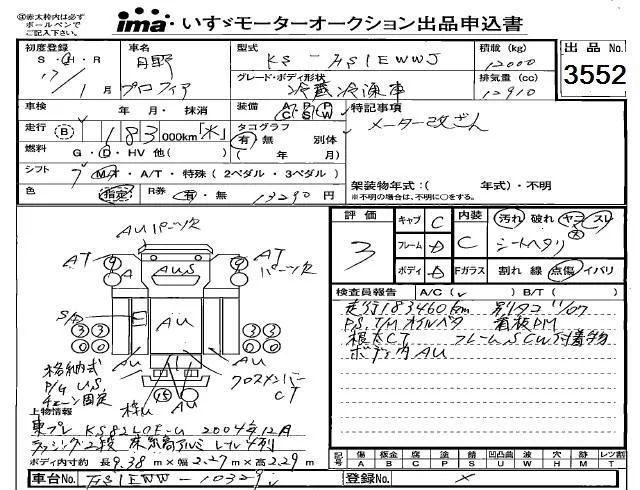 ㊟赤太枠内は必ず
ボールペンで
ご記入下さい。
ima いすゞモーターオークション出品申込書
初度登録 車名 型式 積載 (kg) 出品No.
S・H・R 日野 KS-FS1EWWJ 12000 3552
17/1月 プロフィア グレード・ボディ形状 冷蔵冷凍車 排気量 (cc) 12910
車検 年・月・抹消 装備 A C P S P W 特記事項
走行 B 183 000km タコグラフ 有・無 別体 メーター改ざん
燃料 G・D・HV 他( ) ( 年 月)
シフト 7 M/T・A/T・特殊 (2ペダル・3ペダル) 架装物年式:( 年式)・不明
色 指定 R券 有・無 13290円 ※不明の場合は、不明に○をする。
評価 3 キャブ C 内装 C 汚れ 破れ ヤニ スレ
フレーム D シートヘタリ
ボディ D Fガラス 割れ 線 点傷 イバリ
検査員報告 A/C( ) B/T( )
走行183460km
P.S, T/M オイルベタ 看板PM
根太CT フレームSCW付着物
ボディ内AU
AUパーツ欠
AT AT
パーツ欠
AUS
S/B
AU
格納式
P/G US
チェーン固定
AU AU クロスメンバー
CT
上物情報
東プレ KS82LOF-U 2004年12月
ラッシング2段 床 アルミ レール4列
ボディ内寸約 長9.38m×幅2.27m×高2.29m
記号 傷 A 板金 B 腐 C 塗 P 錆 S 凹凸曲 U 波 W 穴 H 跡 M レツ割 T
車台No. FS1EWW-10329 登録No. ×